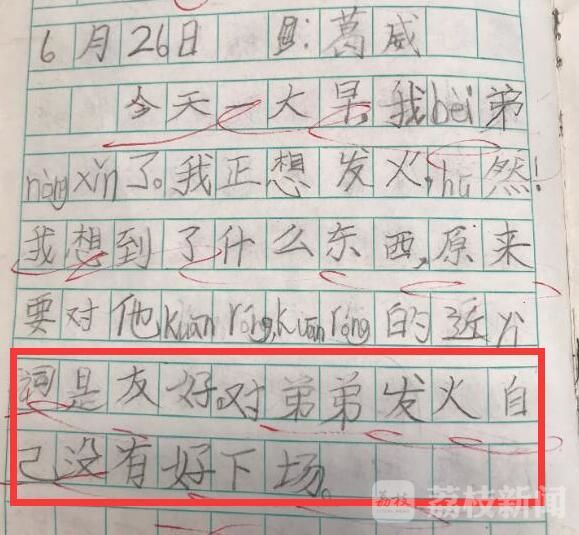 6月26日 易:葛威
今天一大早,我bèi弟
nòng xǐn了。我正想发火,hū然!
我想到了什么东西,原来
要对他kuān róng,kuān róng的近义
词是友好。对弟弟发火自
己没有好下场。
荔枝 荔枝新闻